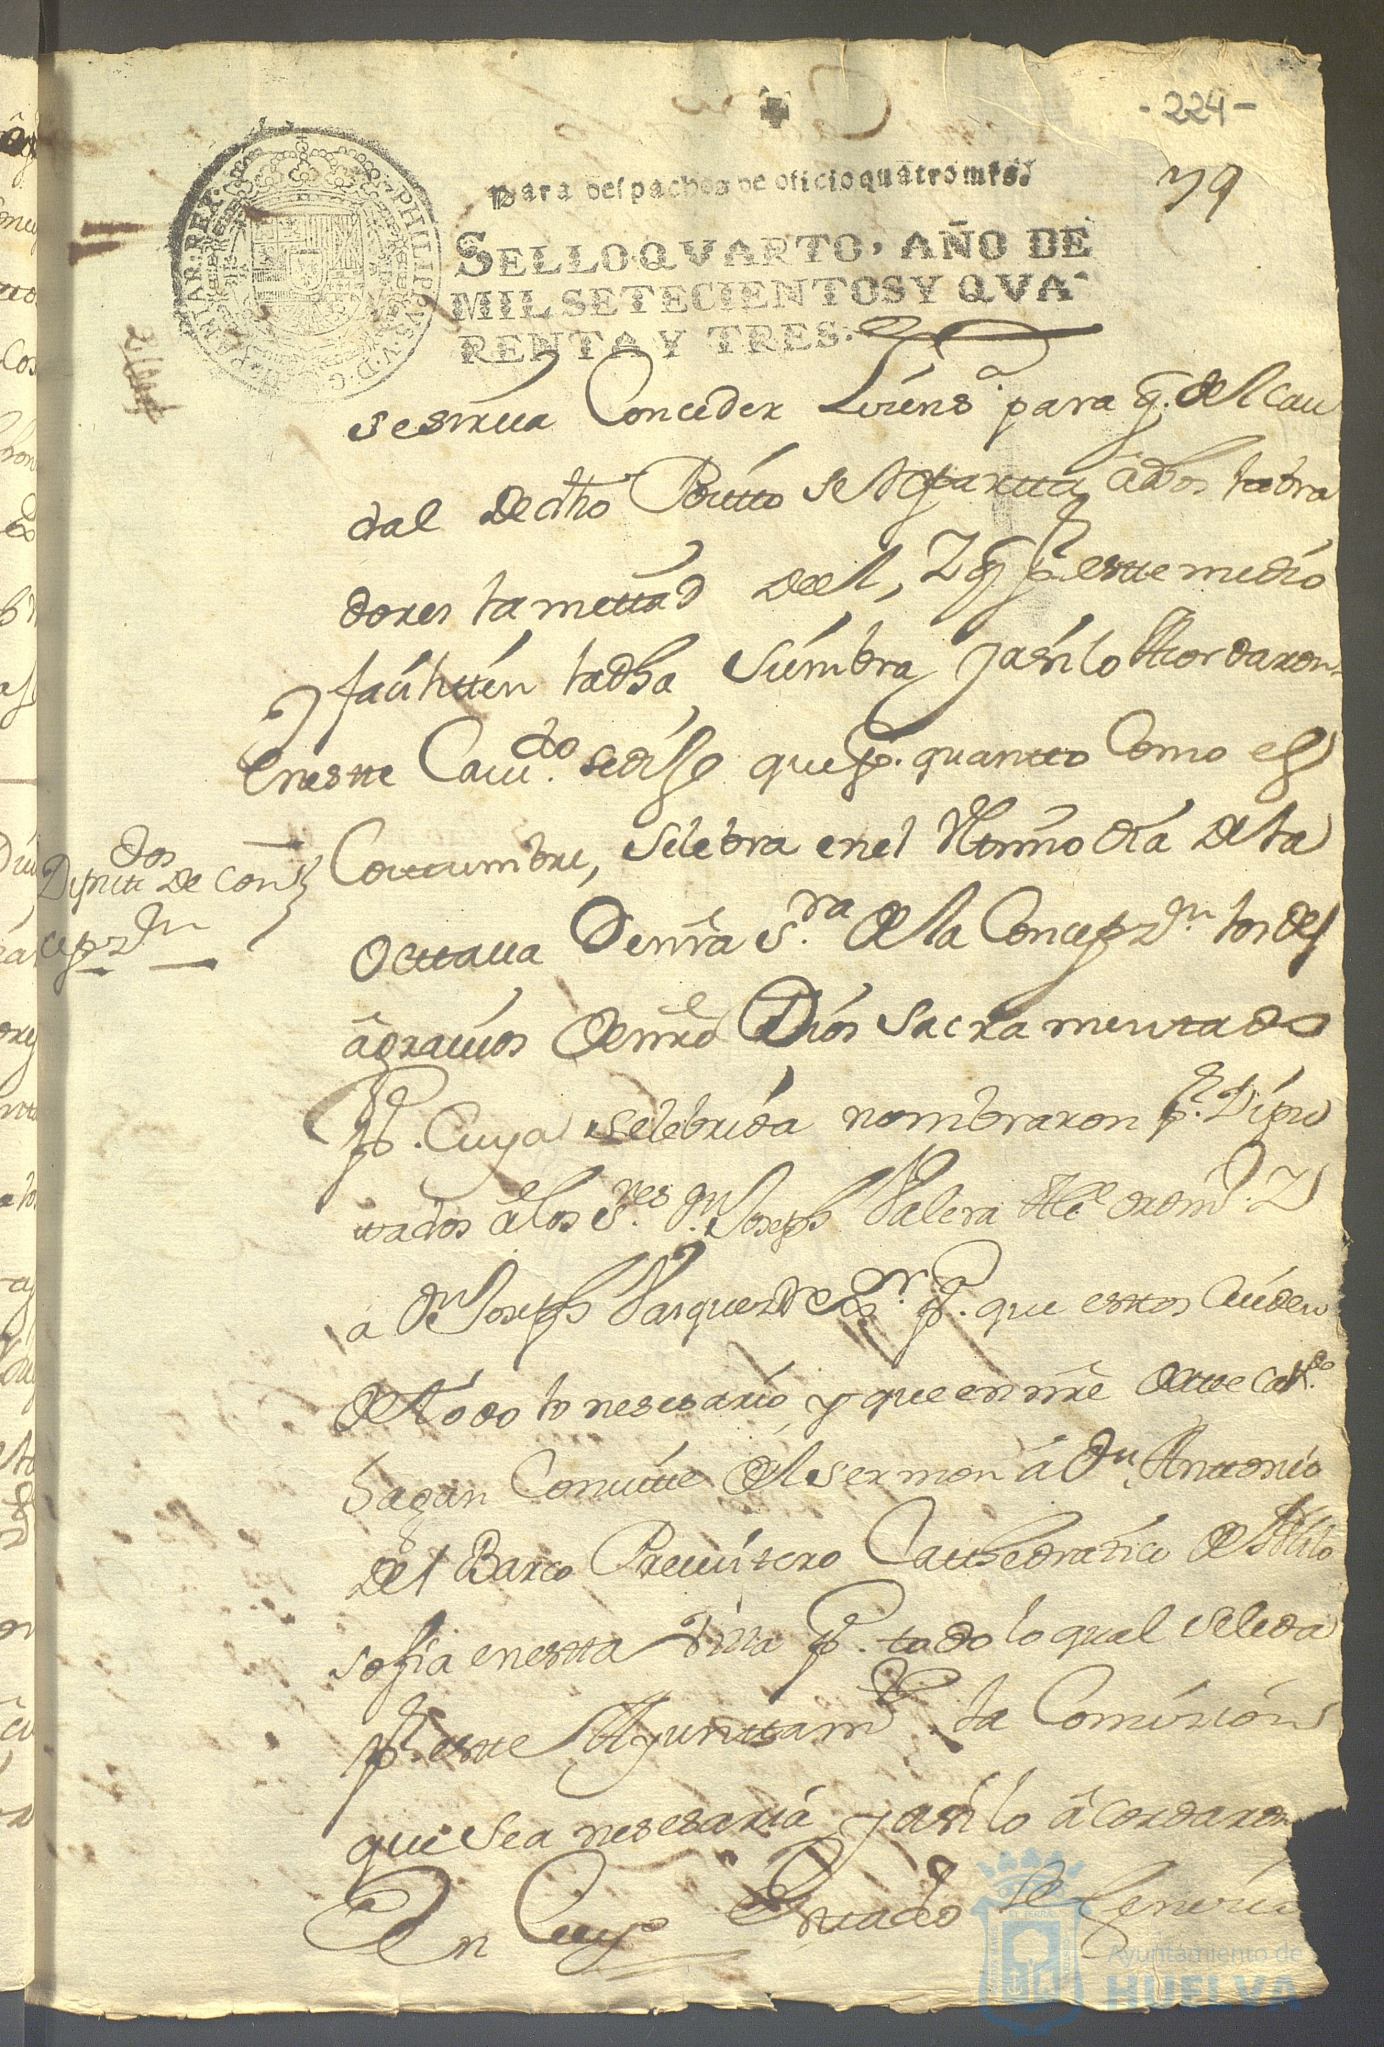 - 224 -
79
Para despachos de oficio quatro mrs.
SELLO QVARTO, AÑO DE
MIL SETECIENTOS Y QVA-
RENTA Y TRES.
PHILIPPVS V D G
HISPANIAR REX
se sirua Conceder Lisens.a para q. del Cau
dal de dho Pocitto se Reparta a dhos labra
dores la mettad del, Y q pr. este medio
faciliten la dha Siembra, y asi lo Acordaron
En este Cau.do se dijo que p. quantto Como es
Costtumbre, selebra en el Ultimo dia de la
Octtaua De nra S.ra de la Concepz.n los des
agrauios de nro Dios Sacramentado
Dipu dos de Con
cepz.n
P. Cuya selebrida nombraron pr. Dipu
tados a los S.res Dn. Joseph Valera Alce. ordin.o Y
a Dn. Joseph Vasquez P. que esttos Cuiden
de todo lo nesesario y que en nre de este Cau.do
hagan Conuitte del sermon a Dn. Anttonio
del Barco Presuitero Cathedratico de Philo
sofia en estta Villa P. todo lo qual se les da
pr. este Ayunttam.to la Comision
que sea nesesaria y asi lo acordaron
En Cuyo Esttado
Ayuntamiento de
HUELVA